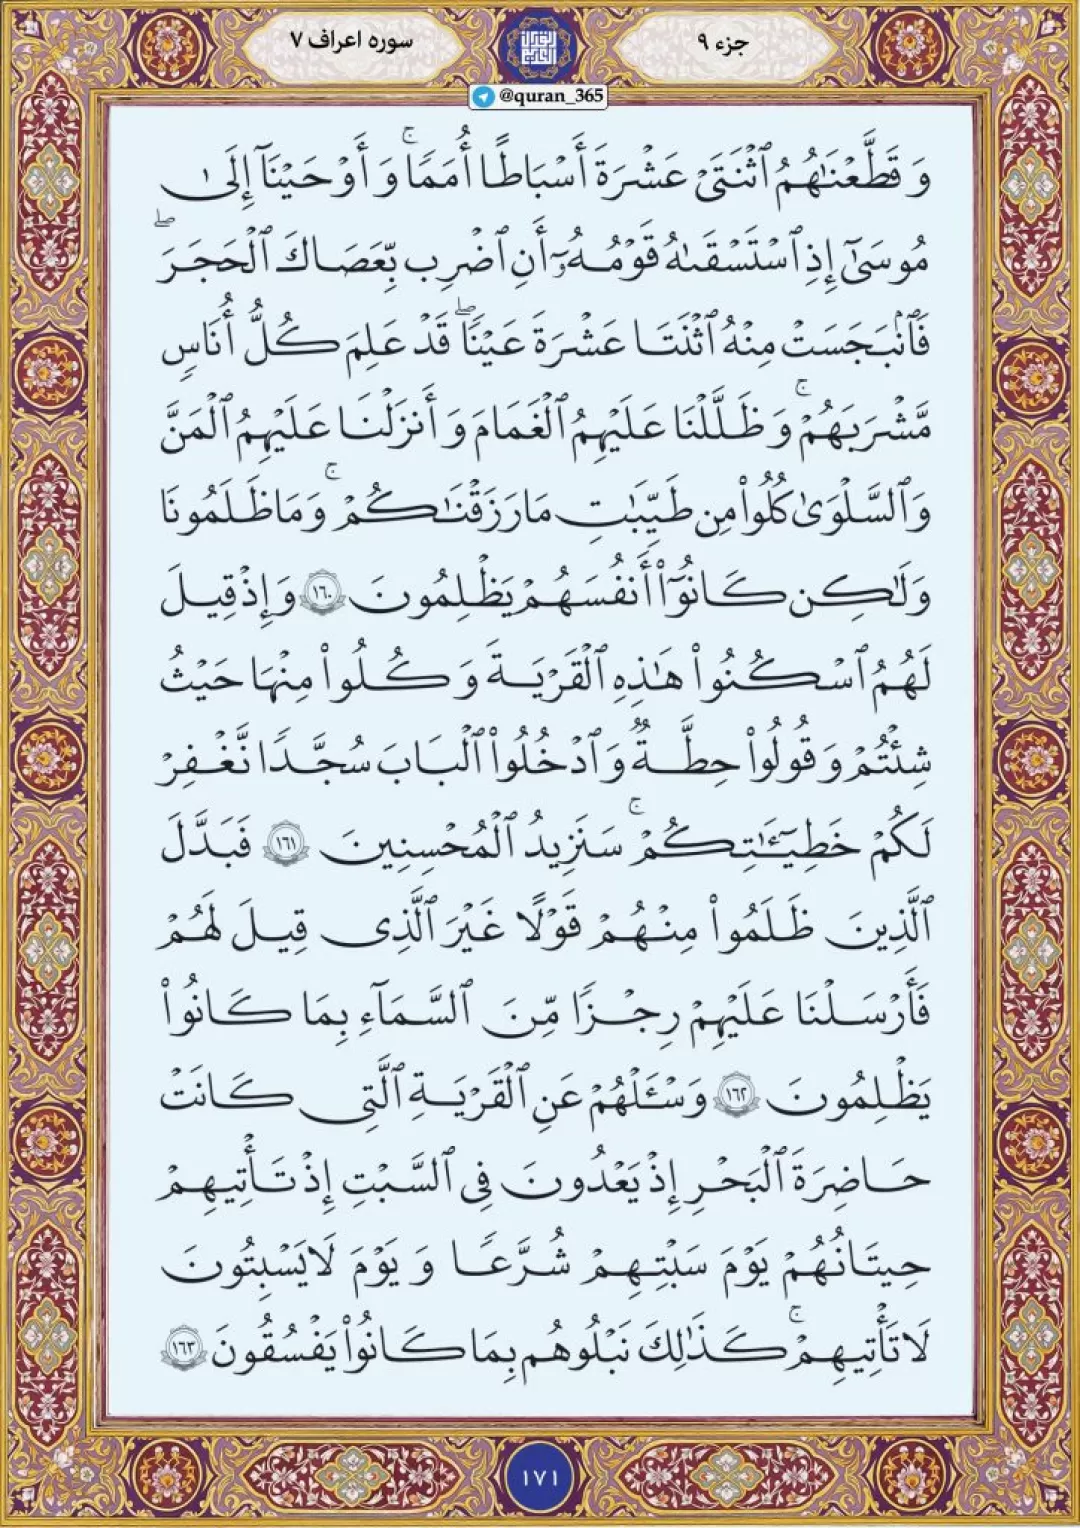 جزء ۹
سوره اعراف ۷
@quran_365
وَقَطَّعْنَٰهُمُ ٱثْنَتَىْ عَشْرَةَ أَسْبَاطًا أُمَمًاۚ وَأَوْحَيْنَآ إِلَىٰ
مُوسَىٰٓ إِذِ ٱسْتَسْقَىٰهُ قَوْمُهُۥٓ أَنِ ٱضْرِب بِّعَصَاكَ ٱلْحَجَرَۖ
فَٱنۢبَجَسَتْ مِنْهُ ٱثْنَتَا عَشْرَةَ عَيْنًاۖ قَدْ عَلِمَ كُلُّ أُنَاسٍ
مَّشْرَبَهُمْۚ وَظَلَّلْنَا عَلَيْهِمُ ٱلْغَمَامَ وَأَنزَلْنَا عَلَيْهِمُ ٱلْمَنَّ
وَٱلسَّلْوَىٰ كُلُوا۟ مِن طَيِّبَٰتِ مَا رَزَقْنَٰكُمْۚ وَمَا ظَلَمُونَا
وَلَٰكِن كَانُوٓا۟ أَنفُسَهُمْ يَظْلِمُونَ ١٦٠ وَإِذْ قِيلَ
لَهُمُ ٱسْكُنُوا۟ هَٰذِهِ ٱلْقَرْيَةَ وَكُلُوا۟ مِنْهَا حَيْثُ
شِئْتُمْ وَقُولُوا۟ حِطَّةٌ وَٱدْخُلُوا۟ ٱلْبَابَ سُجَّدًا نَّغْفِرْ
لَكُمْ خَطِيٓـَٰٔتِكُمْۚ سَنَزِيدُ ٱلْمُحْسِنِينَ ١٦١ فَبَدَّلَ
ٱلَّذِينَ ظَلَمُوا۟ مِنْهُمْ قَوْلًا غَيْرَ ٱلَّذِى قِيلَ لَهُمْ
فَأَرْسَلْنَا عَلَيْهِمْ رِجْزًا مِّنَ ٱلسَّمَآءِ بِمَا كَانُوا۟
يَظْلِمُونَ ١٦٢ وَسْـَٔلْهُمْ عَنِ ٱلْقَرْيَةِ ٱلَّتِى كَانَتْ
حَاضِرَةَ ٱلْبَحْرِ إِذْ يَعْدُونَ فِى ٱلسَّبْتِ إِذْ تَأْتِيهِمْ
حِيتَانُهُمْ يَوْمَ سَبْتِهِمْ شُرَّعًا وَيَوْمَ لَا يَسْبِتُونَ
لَا تَأْتِيهِمْۚ كَذَٰلِكَ نَبْلُوهُم بِمَا كَانُوا۟ يَفْسُقُونَ ١٦٣
١٧١